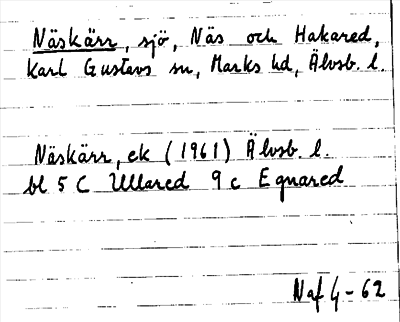 Näskärr, sjö, Näs och Hakared,
Karl Gustavs sn, Marks hd, Älvsb. l.
Näskärr, ek (1961) Älvsb. l.
bl 5 C Ullared 9 c Egnared
Naf 4-62